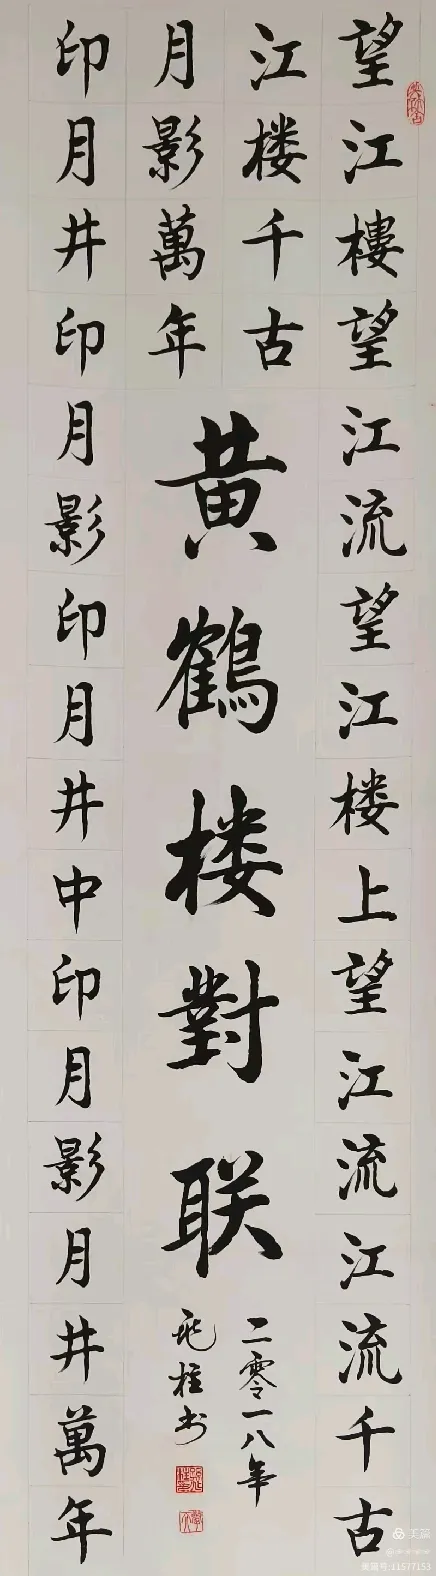 望江樓望江流望江楼上望江流江流千古
江楼千古
印月井印月影印月井中印月影月井萬年
月影萬年
黄鶴楼對联
二零一八年
柱书
美篇
美篇号:11577153